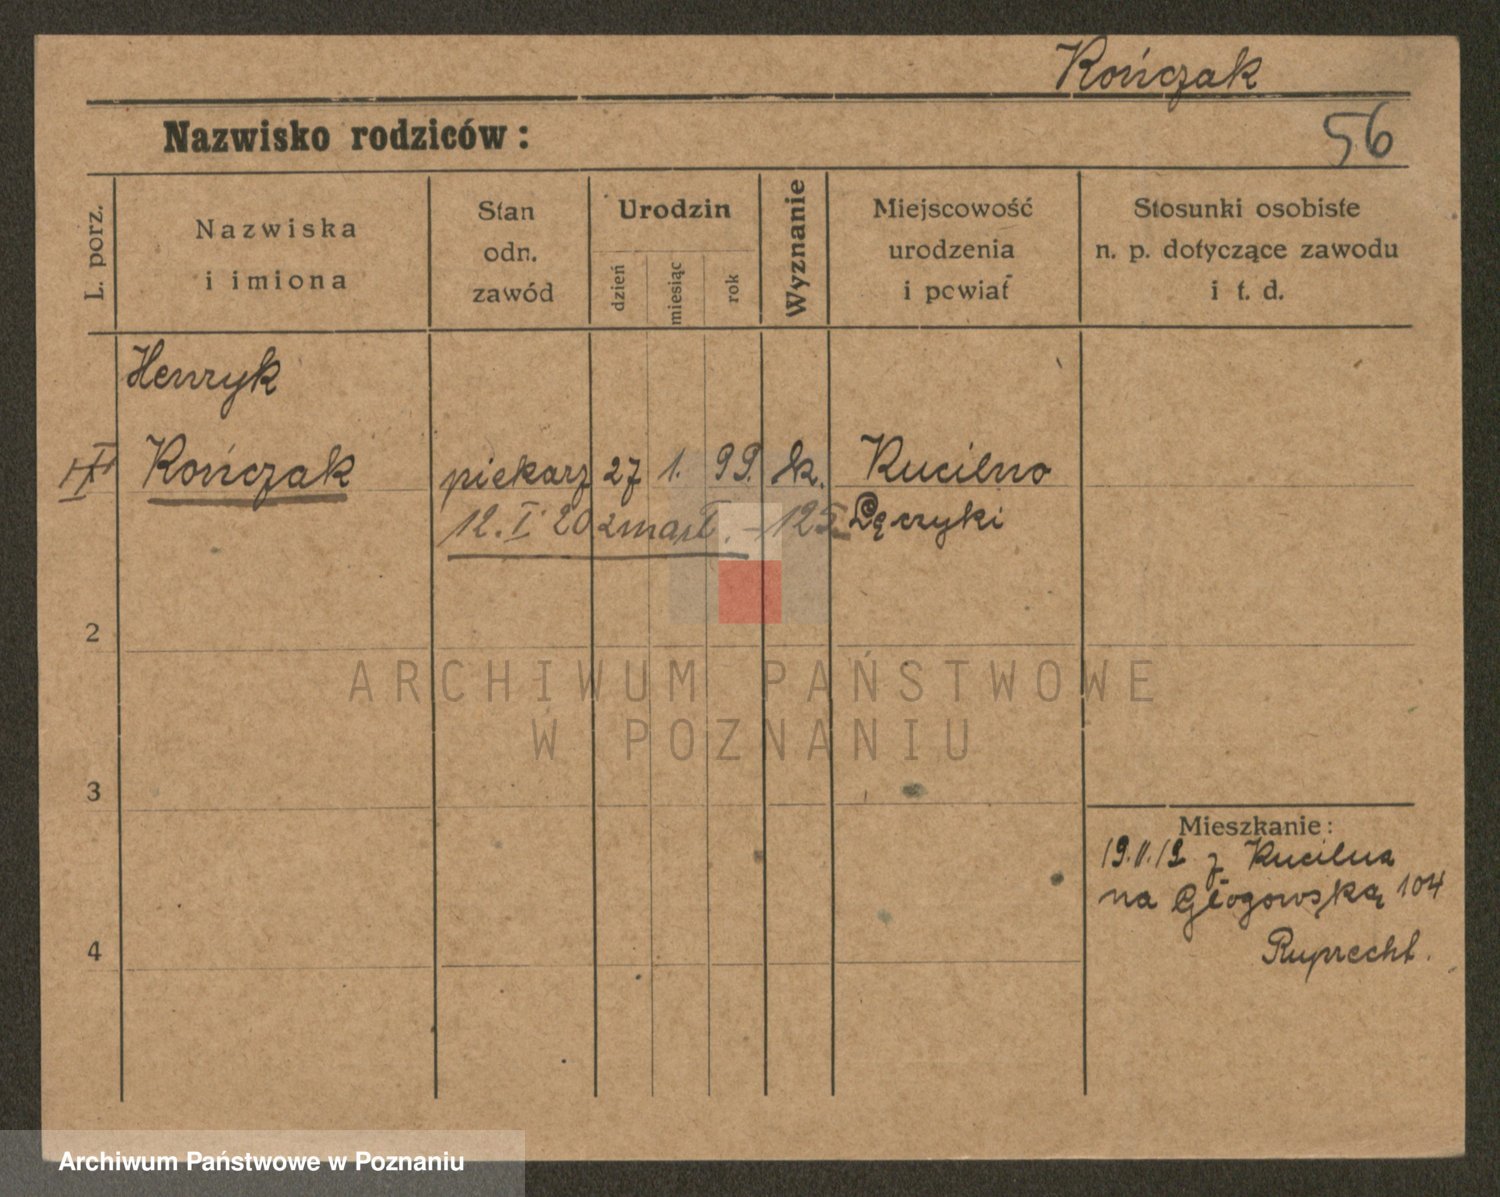 Kończak
Nazwisko rodziców:
56
L. porz.
Nazwiska
i imiona
Stan
odn.
zawód
Urodzin
dzień
miesiąc
rok
Wyznanie
Miejscowość
urodzenia
i powiat
Stosunki osobiste
n. p. dotyczące zawodu
i t. d.
Henryk
Kończak piekarz 27 1. 99. k. Kucilno
12. I 20 zmarł. - 125. Łęczyki
2
3
4
Mieszkanie:
19.II.19 z Kucilna
na Głogowską 104
Ruprecht.
ARCHIWUM PAŃSTWOWE
W POZNANIU
Archiwum Państwowe w Poznaniu